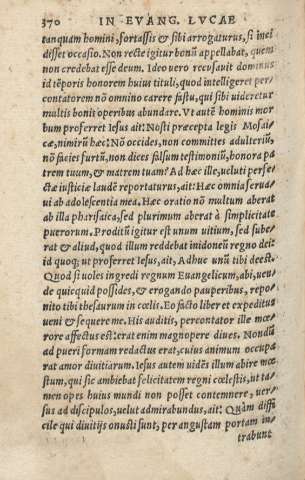 370 IN EVANG. LVCAE
tanquam homini, fortassis & sibi arrogaturus, si inel
disset occasio. Non recte igitur bonũ appellabat, quem
non credebat esse deum. Ideo vero recusauit dominus
id tẽporis honorem huius tituli, quod intelligeret per-
contatorem nõ omnino carere fastu, qui sibi uideretur
multis bonis operibus abundare. Vt autẽ hominis mor
bum proferret Iesus ait: Nosti præcepta legis Mosai-
cæ, nimirũ hæc: Nõ occides, non committes adulteriũ,
nõ facies furtũ, non dices falsum testimoniũ, honora pa
trem tuum, & matrem tuam? Ad hæc ille, ueluti perfe-
ctæ iusticiæ laudẽ reportaturus, ait: Hæc omnia serua-
ui ab adolescentia mea. Hæc oratio nõ multum aberat
ab illa pharisaica, sed plurimum aberat à simplicitate
puerorum. Proditũ igitur est unum uitium, sed supe-
rat & aliud, quod illum reddebat inidoneũ regno dei:
id quoq; ut proferret Iesus, ait, Adhuc unũ tibi deest.
Quod si uoles ingredi regnum Euangelicum, abi, uen-
de quicquid possides, & erogando pauperibus, repo-
nito tibi thesaurum in cœlis. Eo facto liber et expeditus
ueni & sequere me. His auditis, percontator ille mœ-
rore affectus est: erat enim magnopere diues. Nondũ
ad pueri formam redactus erat, cuius animum occupa
rat amor diuitiarum. Iesus autem uidẽs illum abire mœ
stum, qui sic ambiebat felicitatem regni cœlestis, ut ta-
men opes huius mundi non posset contemnere, uer-
sus ad discipulos, uelut admirabundus, ait: Quàm diffi
cile qui diuitijs onusti sunt, per angustam portam in-
trabunt